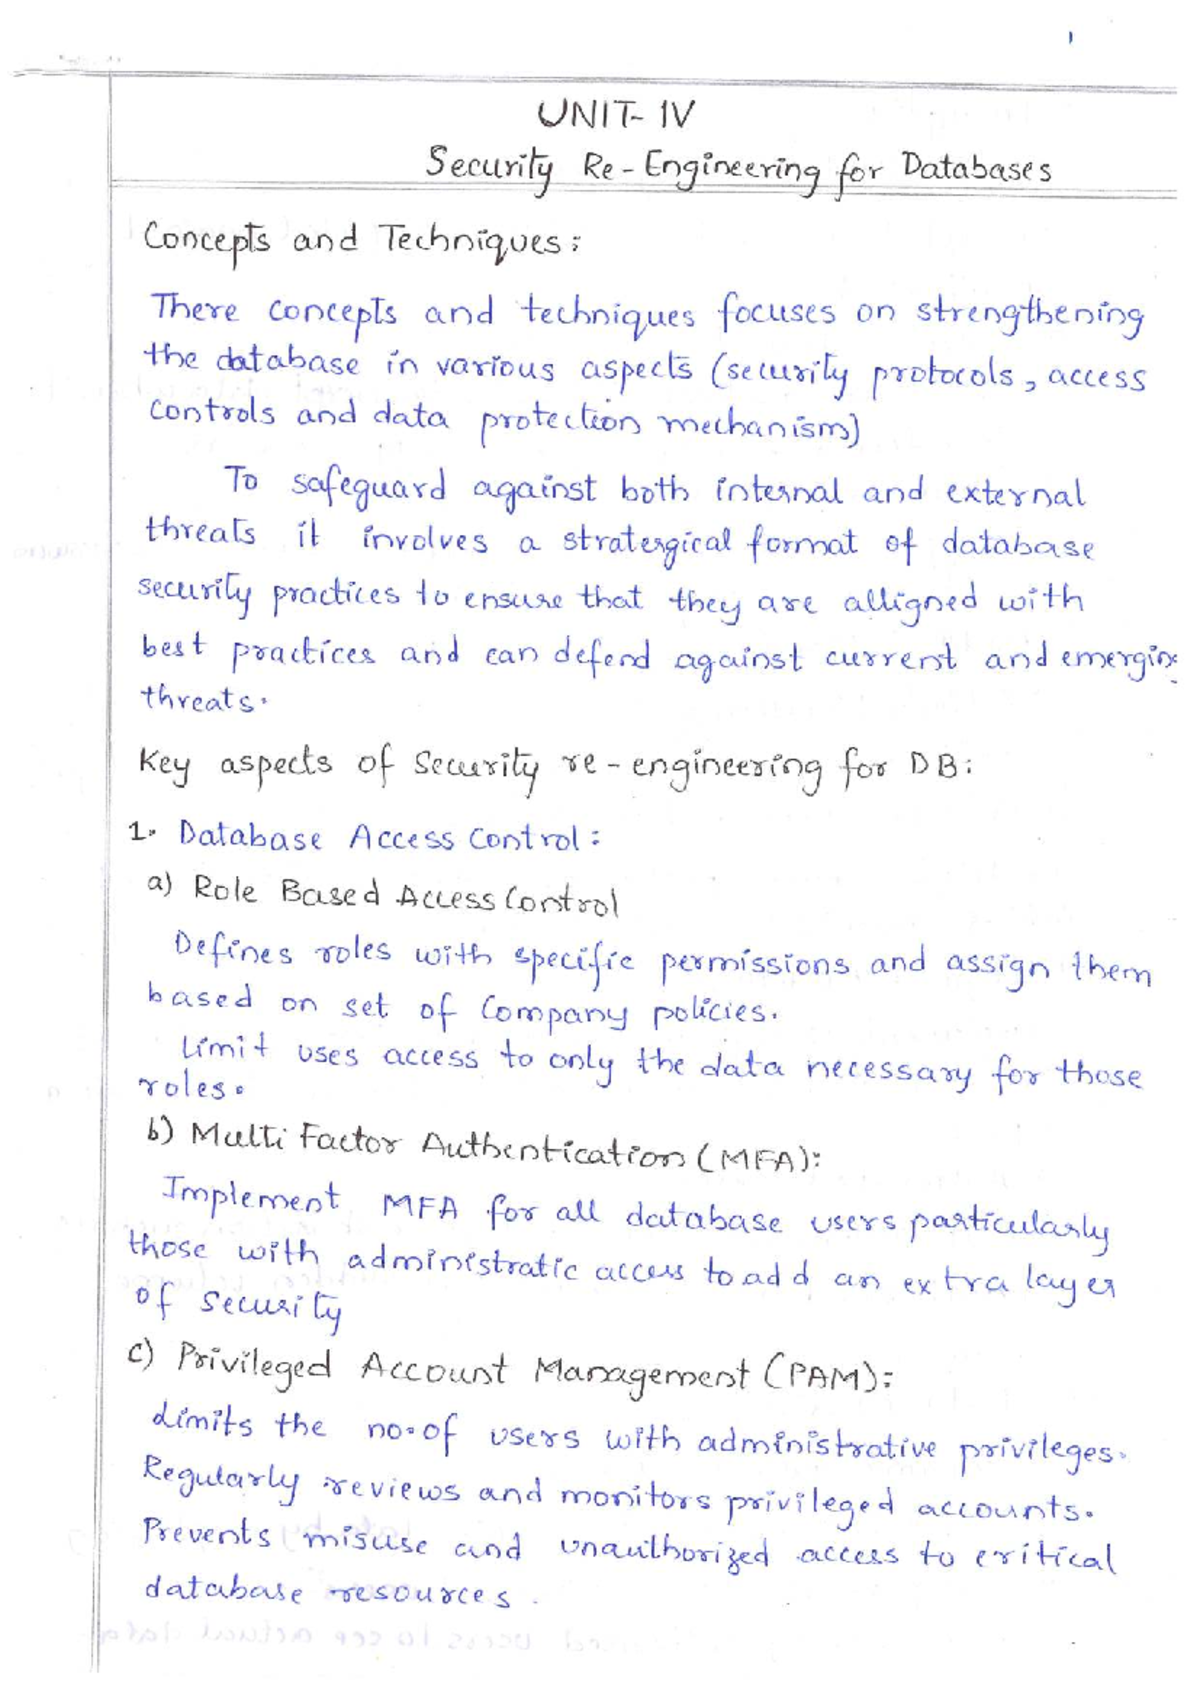 1
UNIT- IV
Security Re-Engineering for Databases
Concepts and Techniques:
There concepts and techniques focuses on strengthening
the database in various aspects (security protocols, access
controls and data protection mechanism)
To safeguard against both internal and external
threats it involves a stratergical format of database
security practices to ensure that they are alligned with
best practices and can defend against current and emerging
threats.
Key aspects of Security re-engineering for DB:
1. Database Access Control:
a) Role Based Access Control
Defines roles with specific permissions and assign them
based on set of Company policies.
Limit uses access to only the data necessary for those
roles.
b) Multi Factor Authentication (MFA):
Implement MFA for all database users particularly
those with administratic access to add an extra layer
of security
c) Privileged Account Management (PAM):
Limits the no. of users with administrative privileges.
Regularly reviews and monitors privileged accounts.
Prevents misuse and unauthorized access to critical
database resources.